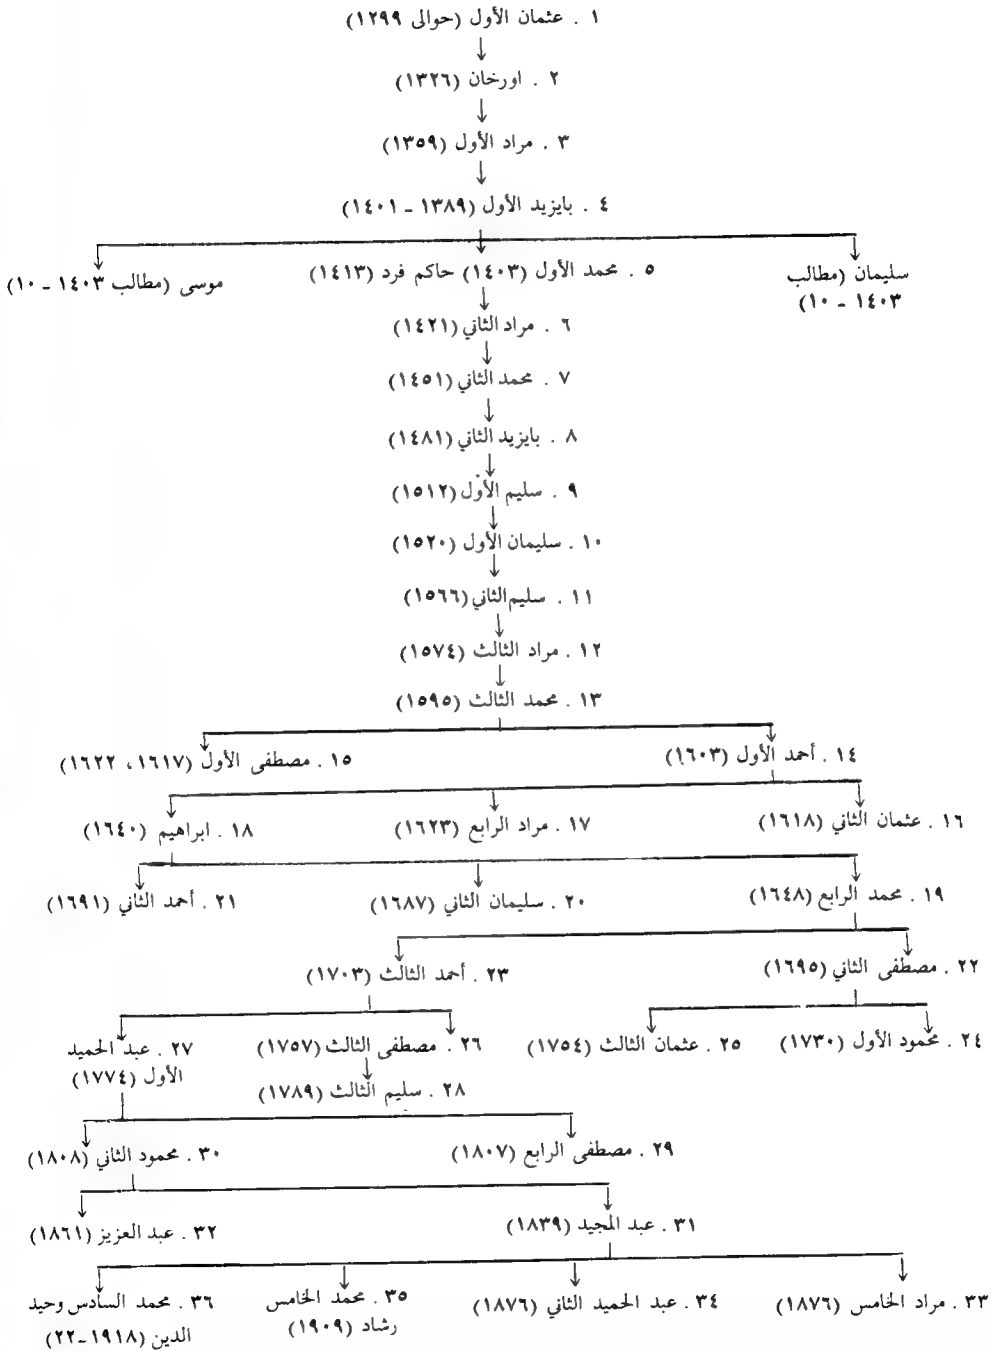 ١ . عثمان الأول (حوالى ١٢٩٩)
٢ . اورخان (١٣٢٦)
٣ . مراد الأول (١٣٥٩)
٤ . بايزيد الأول (١٣٨٩ - ١٤٠١)
سليمان (مطالب
١٤٠٣ - ١٠)
٥ . محمد الأول (١٤٠٣) حاكم فرد (١٤١٣)
موسى (مطالب ١٤٠٣ - ١٠)
٦ . مراد الثاني (١٤٢١)
٧ . محمد الثاني (١٤٥١)
٨ . بايزيد الثاني (١٤٨١)
٩ . سليم الأوّل (١٥١٢)
١٠ . سليمان الأول (١٥٢٠)
١١ . سليم الثاني (١٥٦٦)
١٢ . مراد الثالث (١٥٧٤)
١٣ . محمد الثالث (١٥٩٥)
١٤ . أحمد الأول (١٦٠٣)
١٥ . مصطفى الأول (١٦١٧، ١٦٢٢)
١٦ . عثمان الثاني (١٦١٨)
١٧ . مراد الرابع (١٦٢٣)
١٨ . ابراهيم (١٦٤٠)
١٩ . محمد الرابع (١٦٤٨)
٢٠ . سليمان الثاني (١٦٨٧)
٢١ . أحمد الثاني (١٦٩١)
٢٢ . مصطفى الثاني (١٦٩٥)
٢٣ . أحمد الثالث (١٧٠٣)
٢٤ . محمود الأول (١٧٣٠)
٢٥ . عثمان الثالث (١٧٥٤)
٢٦ . مصطفى الثالث (١٧٥٧)
٢٧ . عبد الحميد
الأول (١٧٧٤)
٢٨ . سليم الثالث (١٧٨٩)
٢٩ . مصطفى الرابع (١٨٠٧)
٣٠ . محمود الثاني (١٨٠٨)
٣١ . عبد المجيد (١٨٣٩)
٣٢ . عبد العزيز (١٨٦١)
٣٣ . مراد الخامس (١٨٧٦)
٣٤ . عبد الحميد الثاني (١٨٧٦)
٣٥ . محمد الخامس
رشاد (١٩٠٩)
٣٦ . محمد السادس وحيد
الدين (١٩١٨-٢٢)